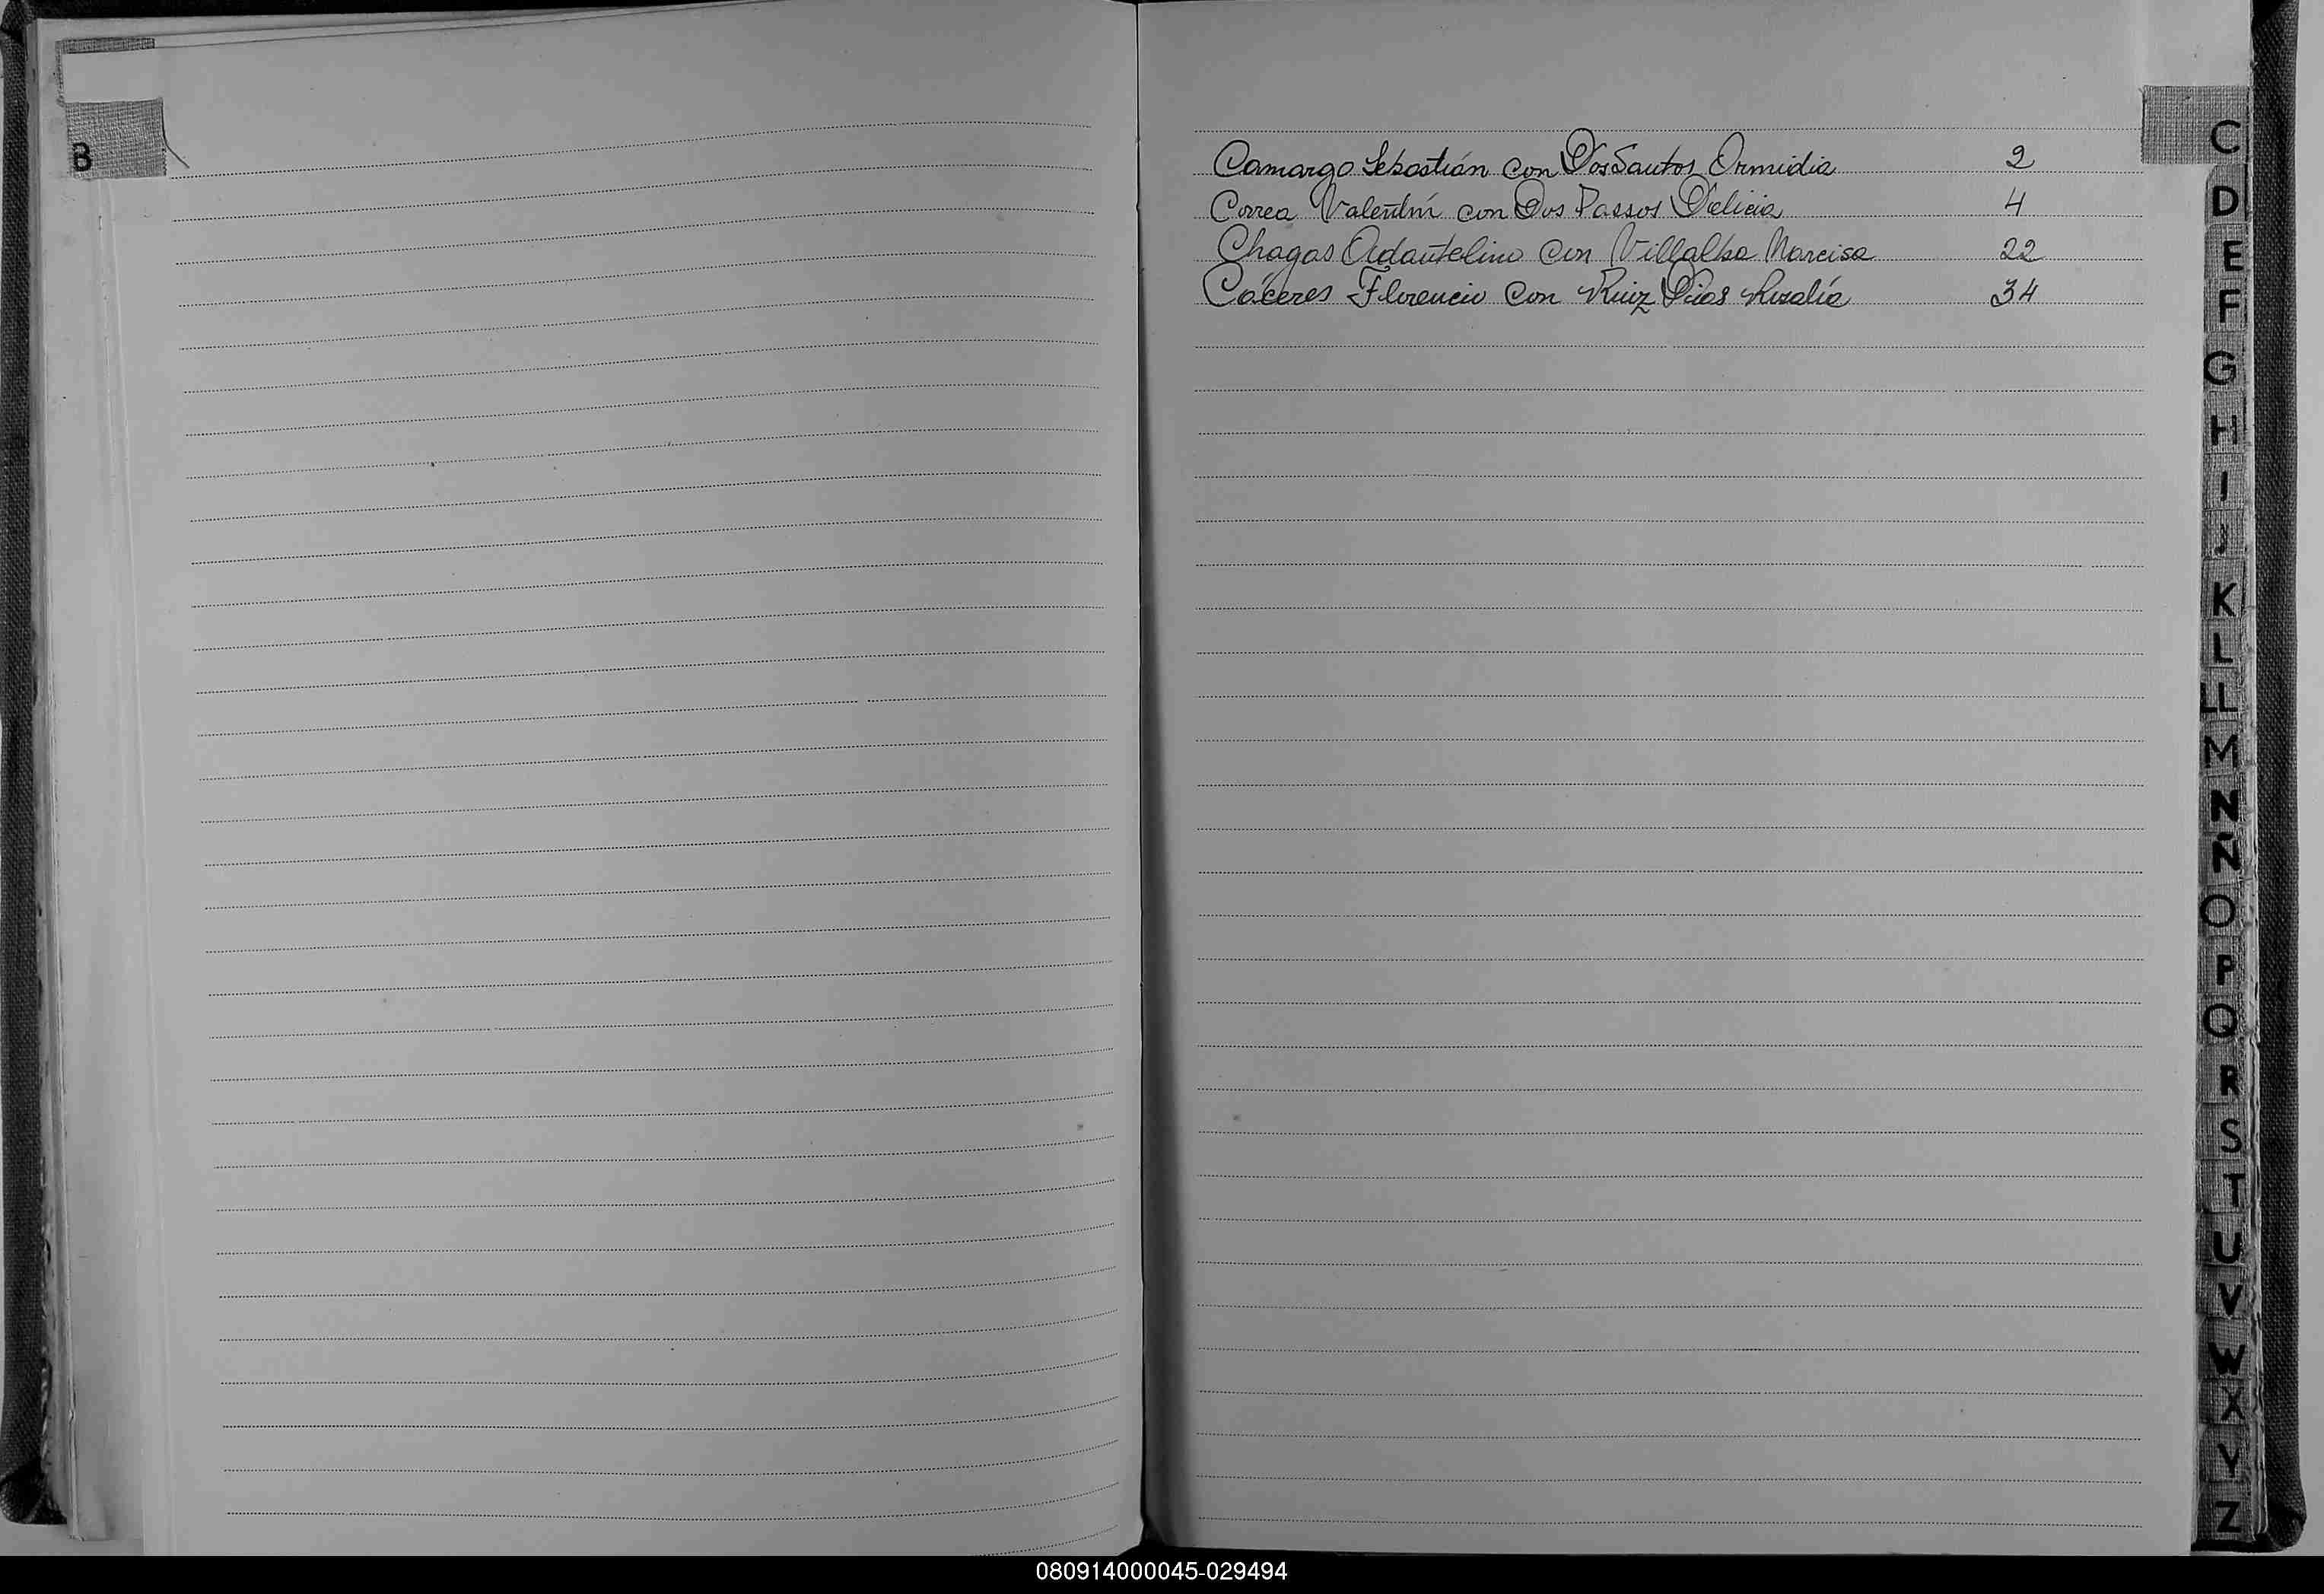 B
Camargo Sebastián con Dos Santos Ormidia 2
Correa Valentín con Dos Passos Delicia 4
Chagas Adautelino con Villalba Narcisa 22
Cáceres Florencio con Ruiz Dias Rosalía 34
C
D
E
F
G
H
I
J
K
L
LL
M
N
Ñ
O
P
Q
R
S
T
U
V
W
X
Y
Z
080914000045-029494